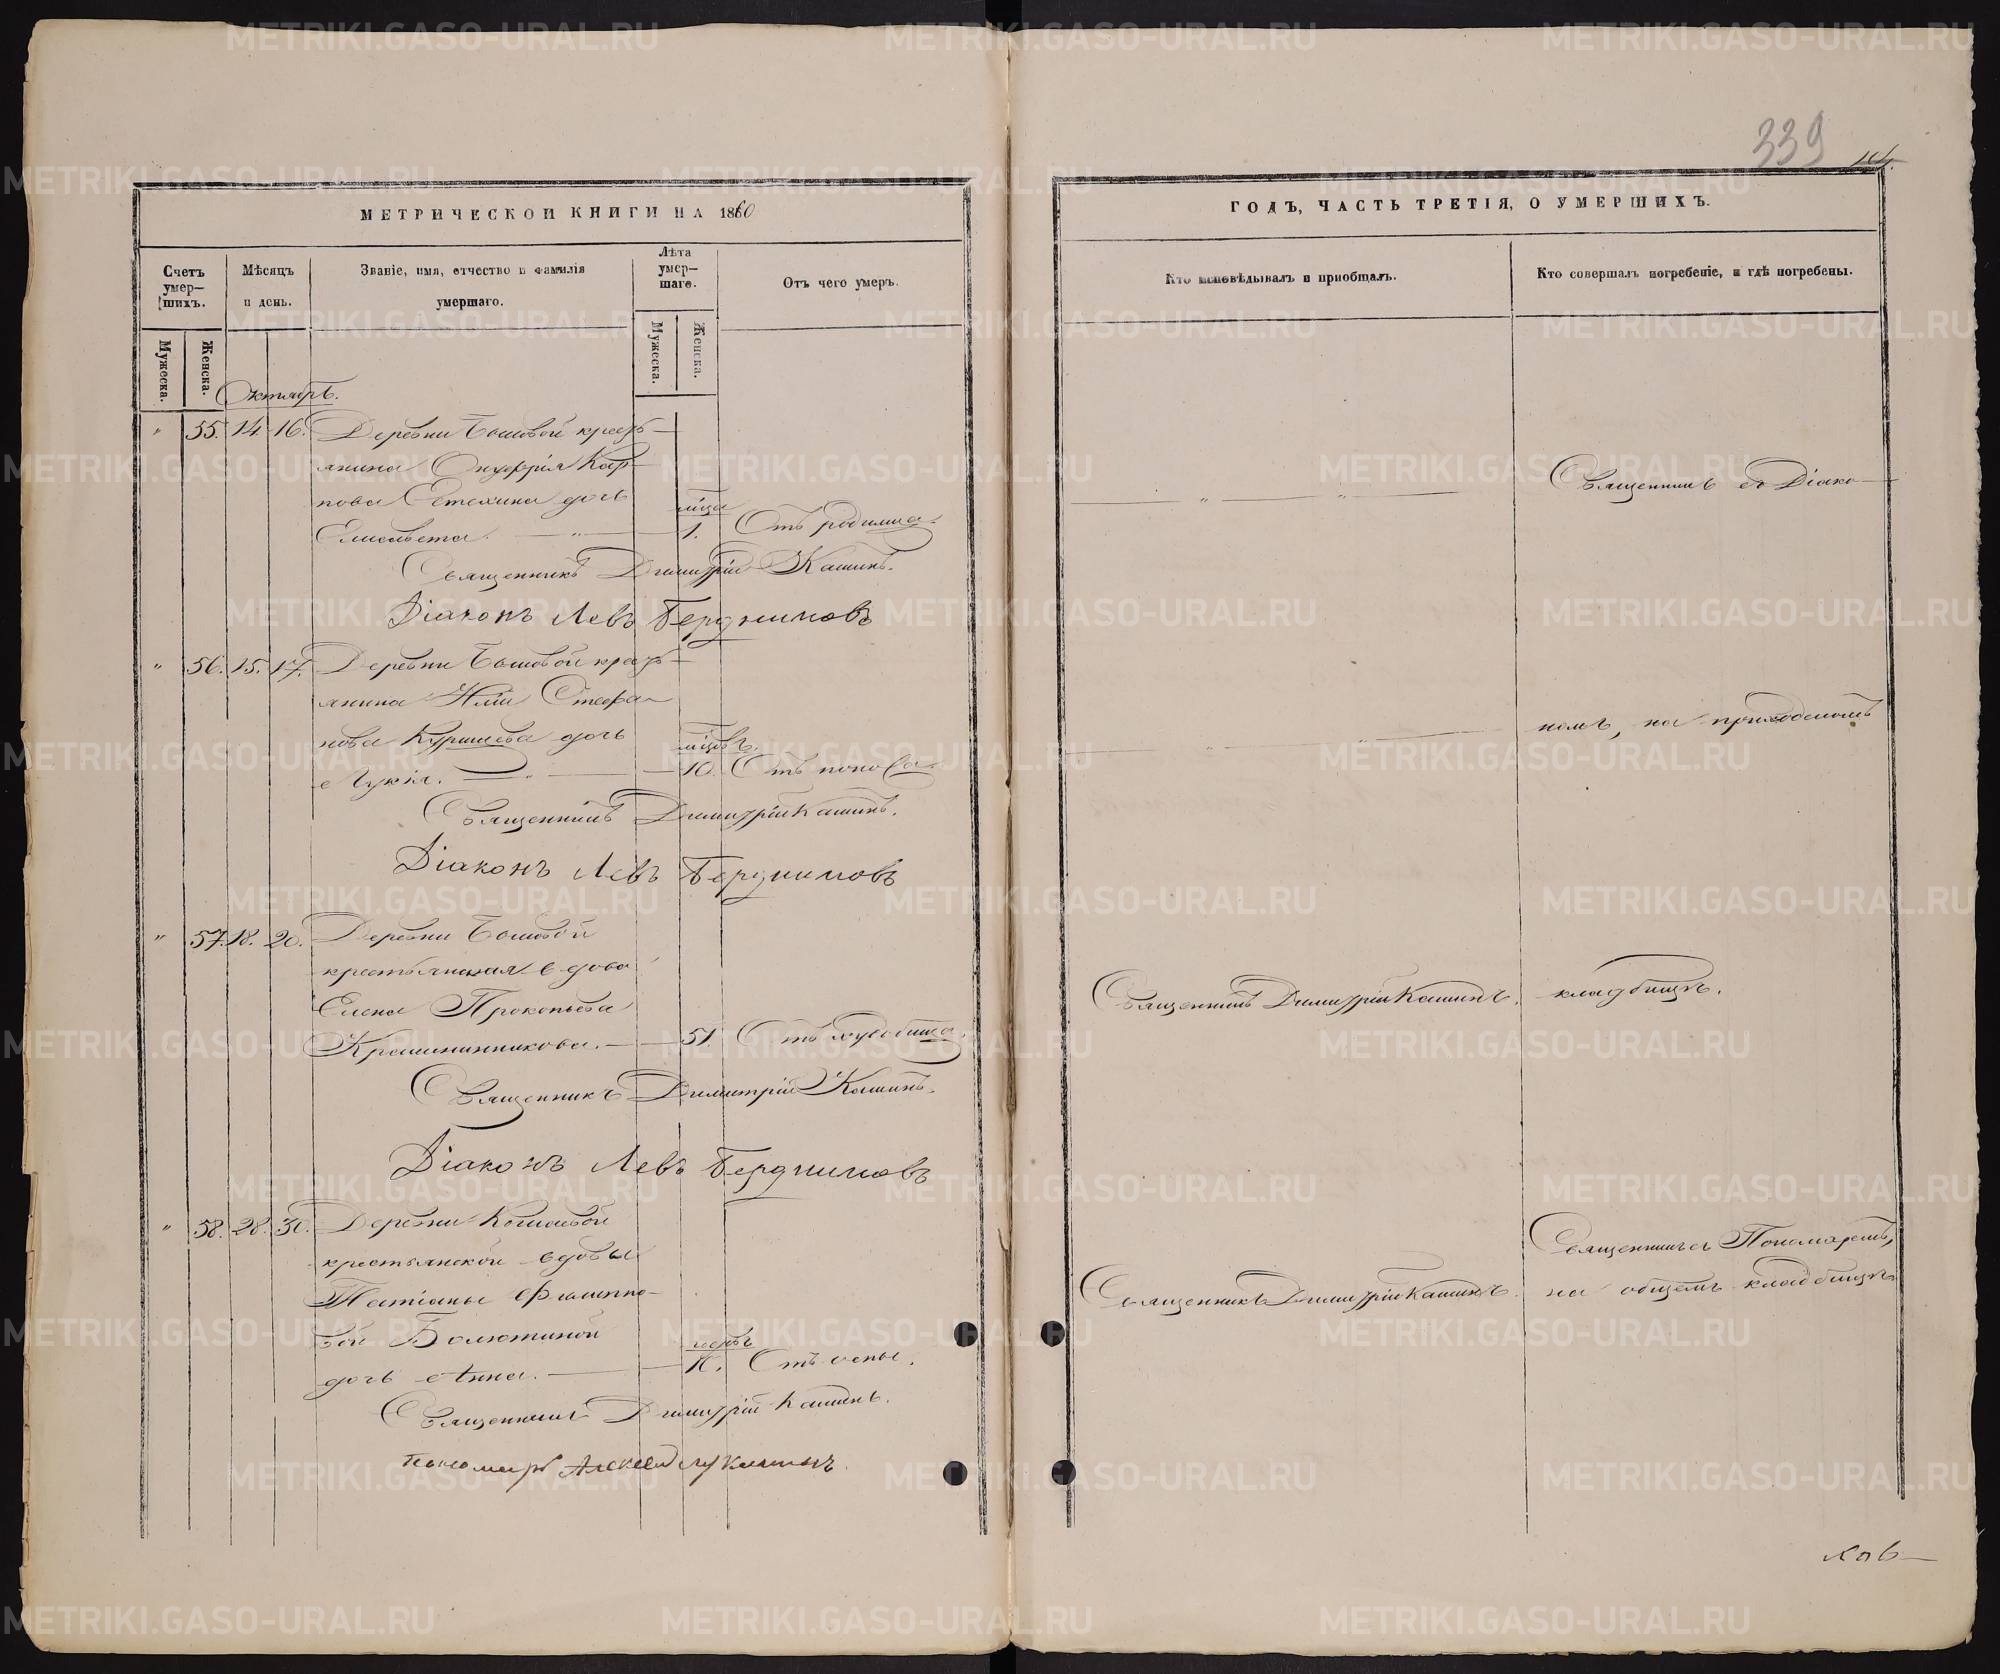 339
МЕТРИЧЕСКОЙ КНИГИ НА 1860
Счетъ умер-шихъ.
Мѣсяцъ и день.
Званіе, имя, отчество и фамилія умершаго.
Лѣта умер-шаго.
Отъ чего умеръ.
Мужеска.
Женска.
Мужеска.
Женска.
Октябрь.
" 55. 14. 16. Деревни крест-
янина Онуфрія Кар-
пова Стехина дочь
мѣсяц
Елисавета. — " — 1. Отъ родимца.
Священникъ Димитрій Кашинъ.
Діаконъ Левъ Бердниковъ
" 56. 15. 17. Деревни крест-
янина Иліи Стефа-
нова дочь
Лукія. — " — 10. Отъ поноса.
Священникъ Димитрій Кашинъ.
Діаконъ Левъ Бердниковъ
" 57. 18. 20. Деревни
крестьянская вдова
Елена Прокопьева
Крашенинникова. — 51. Отъ
Священникъ Димитрій Кашинъ.
Діаконъ Левъ Бердниковъ
" 58. 28. 30. Деревни
крестьянской вдовы
Татіаны Филиппо-
вой
дочь Анна. — Отъ оспы.
Священникъ Димитрій Кашинъ.
Пономарь Алексей
ГОДЪ, ЧАСТЬ ТРЕТІЯ, О УМЕРШИХЪ.
Кто исповѣдывалъ и пріобщалъ.
Кто совершалъ погребеніе, и гдѣ погребены.
— " — " — Священникъ съ Діако-
— " — " — номъ, на приходскомъ
Священникъ Димитрій Кашинъ. кладбищѣ.
Священникъ съ Пономаремъ,
Священникъ Димитрій Кашинъ. на общемъ кладбищѣ.
METRIKI.GASO-URAL.RU